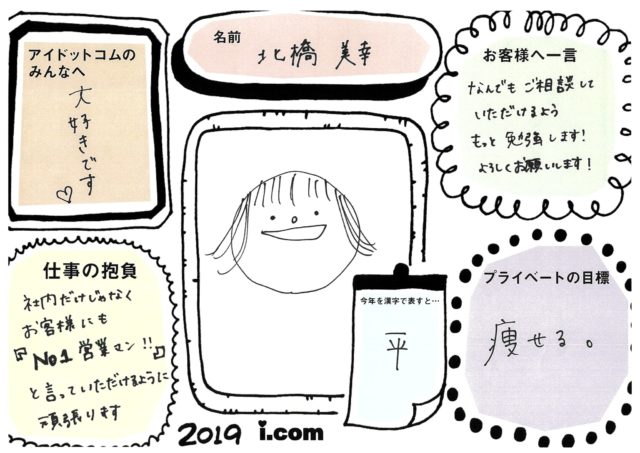 アイドットコムの
みんなへ
大好きです♡
名前
北橋 美幸
お客様へ一言
なんでも ご相談して
いただけるよう
もっと 勉強します!
よろしくお願いします!
仕事の抱負
社内だけじゃなく
お客様にも
『No.1 営業マン!!』
と言っていただけるように
頑張ります
今年を漢字で表すと…
平
プライベートの目標
痩せる。
2019 i.com